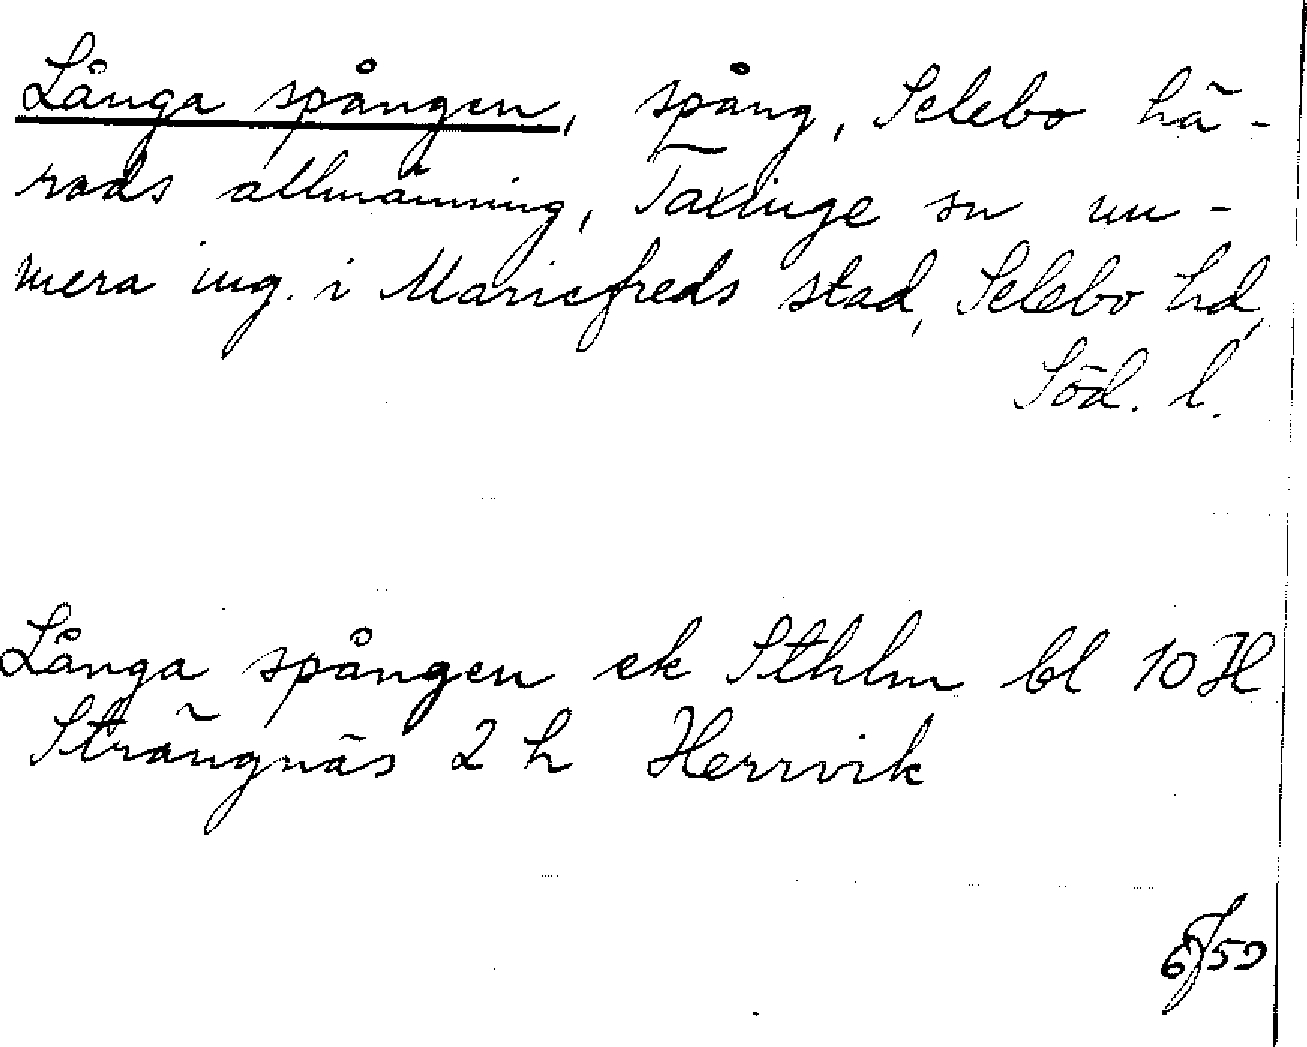 Långa spången, spång, Selebo hä-
rads allmänning, Taxinge sn nu-
mera ing. i Mariefreds stad, Selebo hd,
Söd. l.
Långa spången ek Sthlm bl 10 H
Strängnäs 2 h Herrvik